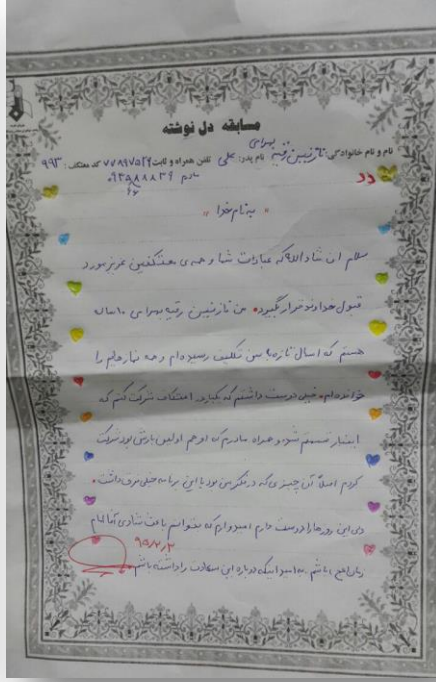 مسابقه دل نوشته
نام و نام خانوادگی: نازنین رقیه بهرامی نام پدر: علی تلفن همراه و ثابت کد معتکف: ۹۹۳
مادرم
" به نام خدا "
سلام ان شاءالله که عبادت شما و همه ی معتکفین عزیز مورد
قبول خداوند قرار گیرد. من نازنین رقیه بهرامی ۱۰ ساله
هستم که امسال تازه به سن تکلیف رسیده ام و همه نمازهایم را
خوانده ام. خیلی دوست داشتم که یکبار در اعتکاف شرکت کنم که
اینبار قسمتم شد و همراه مادرم که او هم اولین بارش بود شرکت
کردم اصلا آن چیزی که در فکر من بود با این برنامه خیلی فرق داشت.
ولی این روزها را دوست دارم امیدوارم که بتوانم باعث شادی آقا امام
زمان (عج) باشم. به امید اینکه دوباره این سعادت را داشته باشم
۹۵/۲/۲